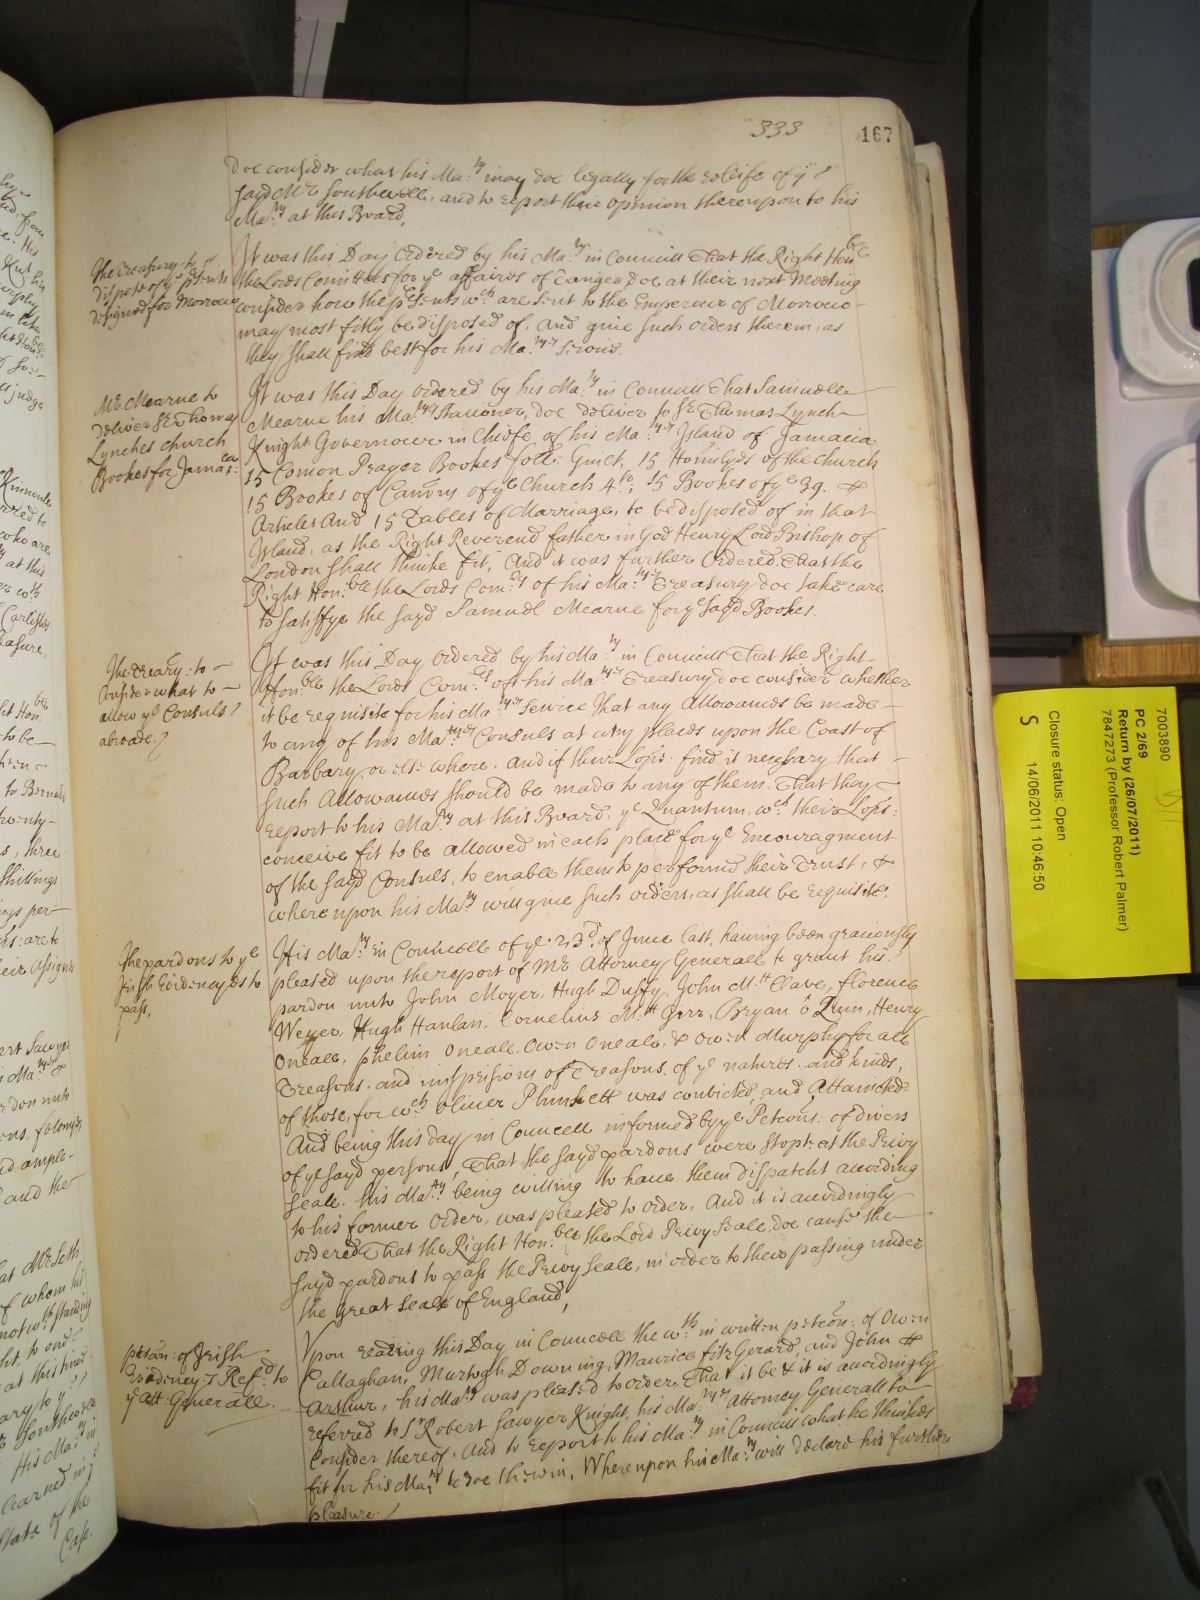 333
167
doe consider what his Ma:ty may doe legally for the Releife of ye
sayd Mr Southwell, and to report their opinion thereupon to his
Ma:ty at this Board,
The Treasury to
dispose of ye presents
designed for Morroco
It was this Day Ordered by his Ma:ty in Councill That the Right Honble
the Lords Comittees for ye affaires of Tanger, doe at their next Meeting
consider how the presents wch are sent to the Emperour of Morroco
may most fitly be disposed of, And give such orders therein, as
they shall find best for his Ma:tys Service.
Mr Mearne to
deliver Sr Thomas
Lynches church
Bookes for Jamaica:
It was this Day ordered by his Ma:ty in Councill That Samuell
Mearne his Ma:tys Stationer, doe deliver to Sr Thomas Lynch
Knight Governour in Cheife, of his Ma:tys Island of Jamaica
15 Comon Prayer Bookes foll: Guilt, 15 Homilyes of the Church
15 Bookes of Canons of ye Church 4to, 15 Bookes of ye 39. &
Articles And 15 Tables of Marriage, to be disposed of in that
Island, as the Right Reverend father in God Henry Lord Bishop of
London shall thinke fit, And it was further Ordered, That the
Right Hon:ble the Lords Com:rs of his Ma:tys Treasury doe take care
to satisfye the sayd Samuel Mearne for ye sayd Bookes.
The Treary: to
Consider what to
allow ye Consuls
abroade.
It was this Day Ordered by his Ma:ty in Councill That the Right
Hon:ble the Lords Com:rs of his Ma:tys Treasury doe consider whether
it be requisite for his Ma:tys Service That any Allowances be made
to any of his Ma:tys Consuls at any places upon the Coast of
Barbary, or else where. And if their Lops: find it necessary that
such Allowances should be made to any of them. That they
report to his Ma:ty at this Board, ye Quantum, wch their Lops:
conceive fit to be allowed in each place for ye Encouragment
of the sayd Consuls, to enable them to performe their Trust, &
where upon his Ma:ty will give such orders, as shall be requisite.
The pardons to ye
Irish Evidences to
pass,
His Ma:ty in Councell of ye 23d of June last, having been graciously
pleased upon the report of Mr Attorney Generall to grant his
pardon unto John Moyer, Hugh Duffy, John M:c Clave, florence
Weyer, Hugh Hanlan, Cornelius M:c Gerr, Bryan ô Quin, Henry
Oneale, phelim Oneale, Owen Oneale, & Owen Murphy for all
Treasons, and misprisions of Treasons, of ye natures and kinds,
of those, for wch Oliver Plunkett was convicted, and Attainted
And being this day in Councell informed by ye Petcons: of divers
of ye sayd persons, That the sayd pardons were stopt at the Privy
Seale. his Ma:ty being willing to have them dispatcht according
to his former Order, was pleased to order, And it is accordingly
ordered, That the Right Hon:ble the Lord Privy Seale, doe cause the
sayd pardons to pass the Privy Seale, in order to their passing under
the great Seale of England,
petcon: of Irish
Evidences Ref:d to
ye Att: Generall.
Upon reading this Day in Councell the wth in written petcon: of Owen
Callaghan, Murtogh Downing, Maurice fitz Gerard, and John
Arthur, his Ma:ty was pleased to order, That it be & it is accordingly
referred to Sr Robert Sawyer Knight, his Ma:tys Attorney Generall to
Consider thereof. And to report to his Ma:ty in Councill what he thinkes
fit for his Ma:ty to doe therein, Whereupon his Ma:ty will declare his further
pleasure.
7003890
PC 2/69
Return by (26/07/2011)
7847273 (Professor Robert Palmer)
Closure status: Open
S 14/06/2011 10:46:50